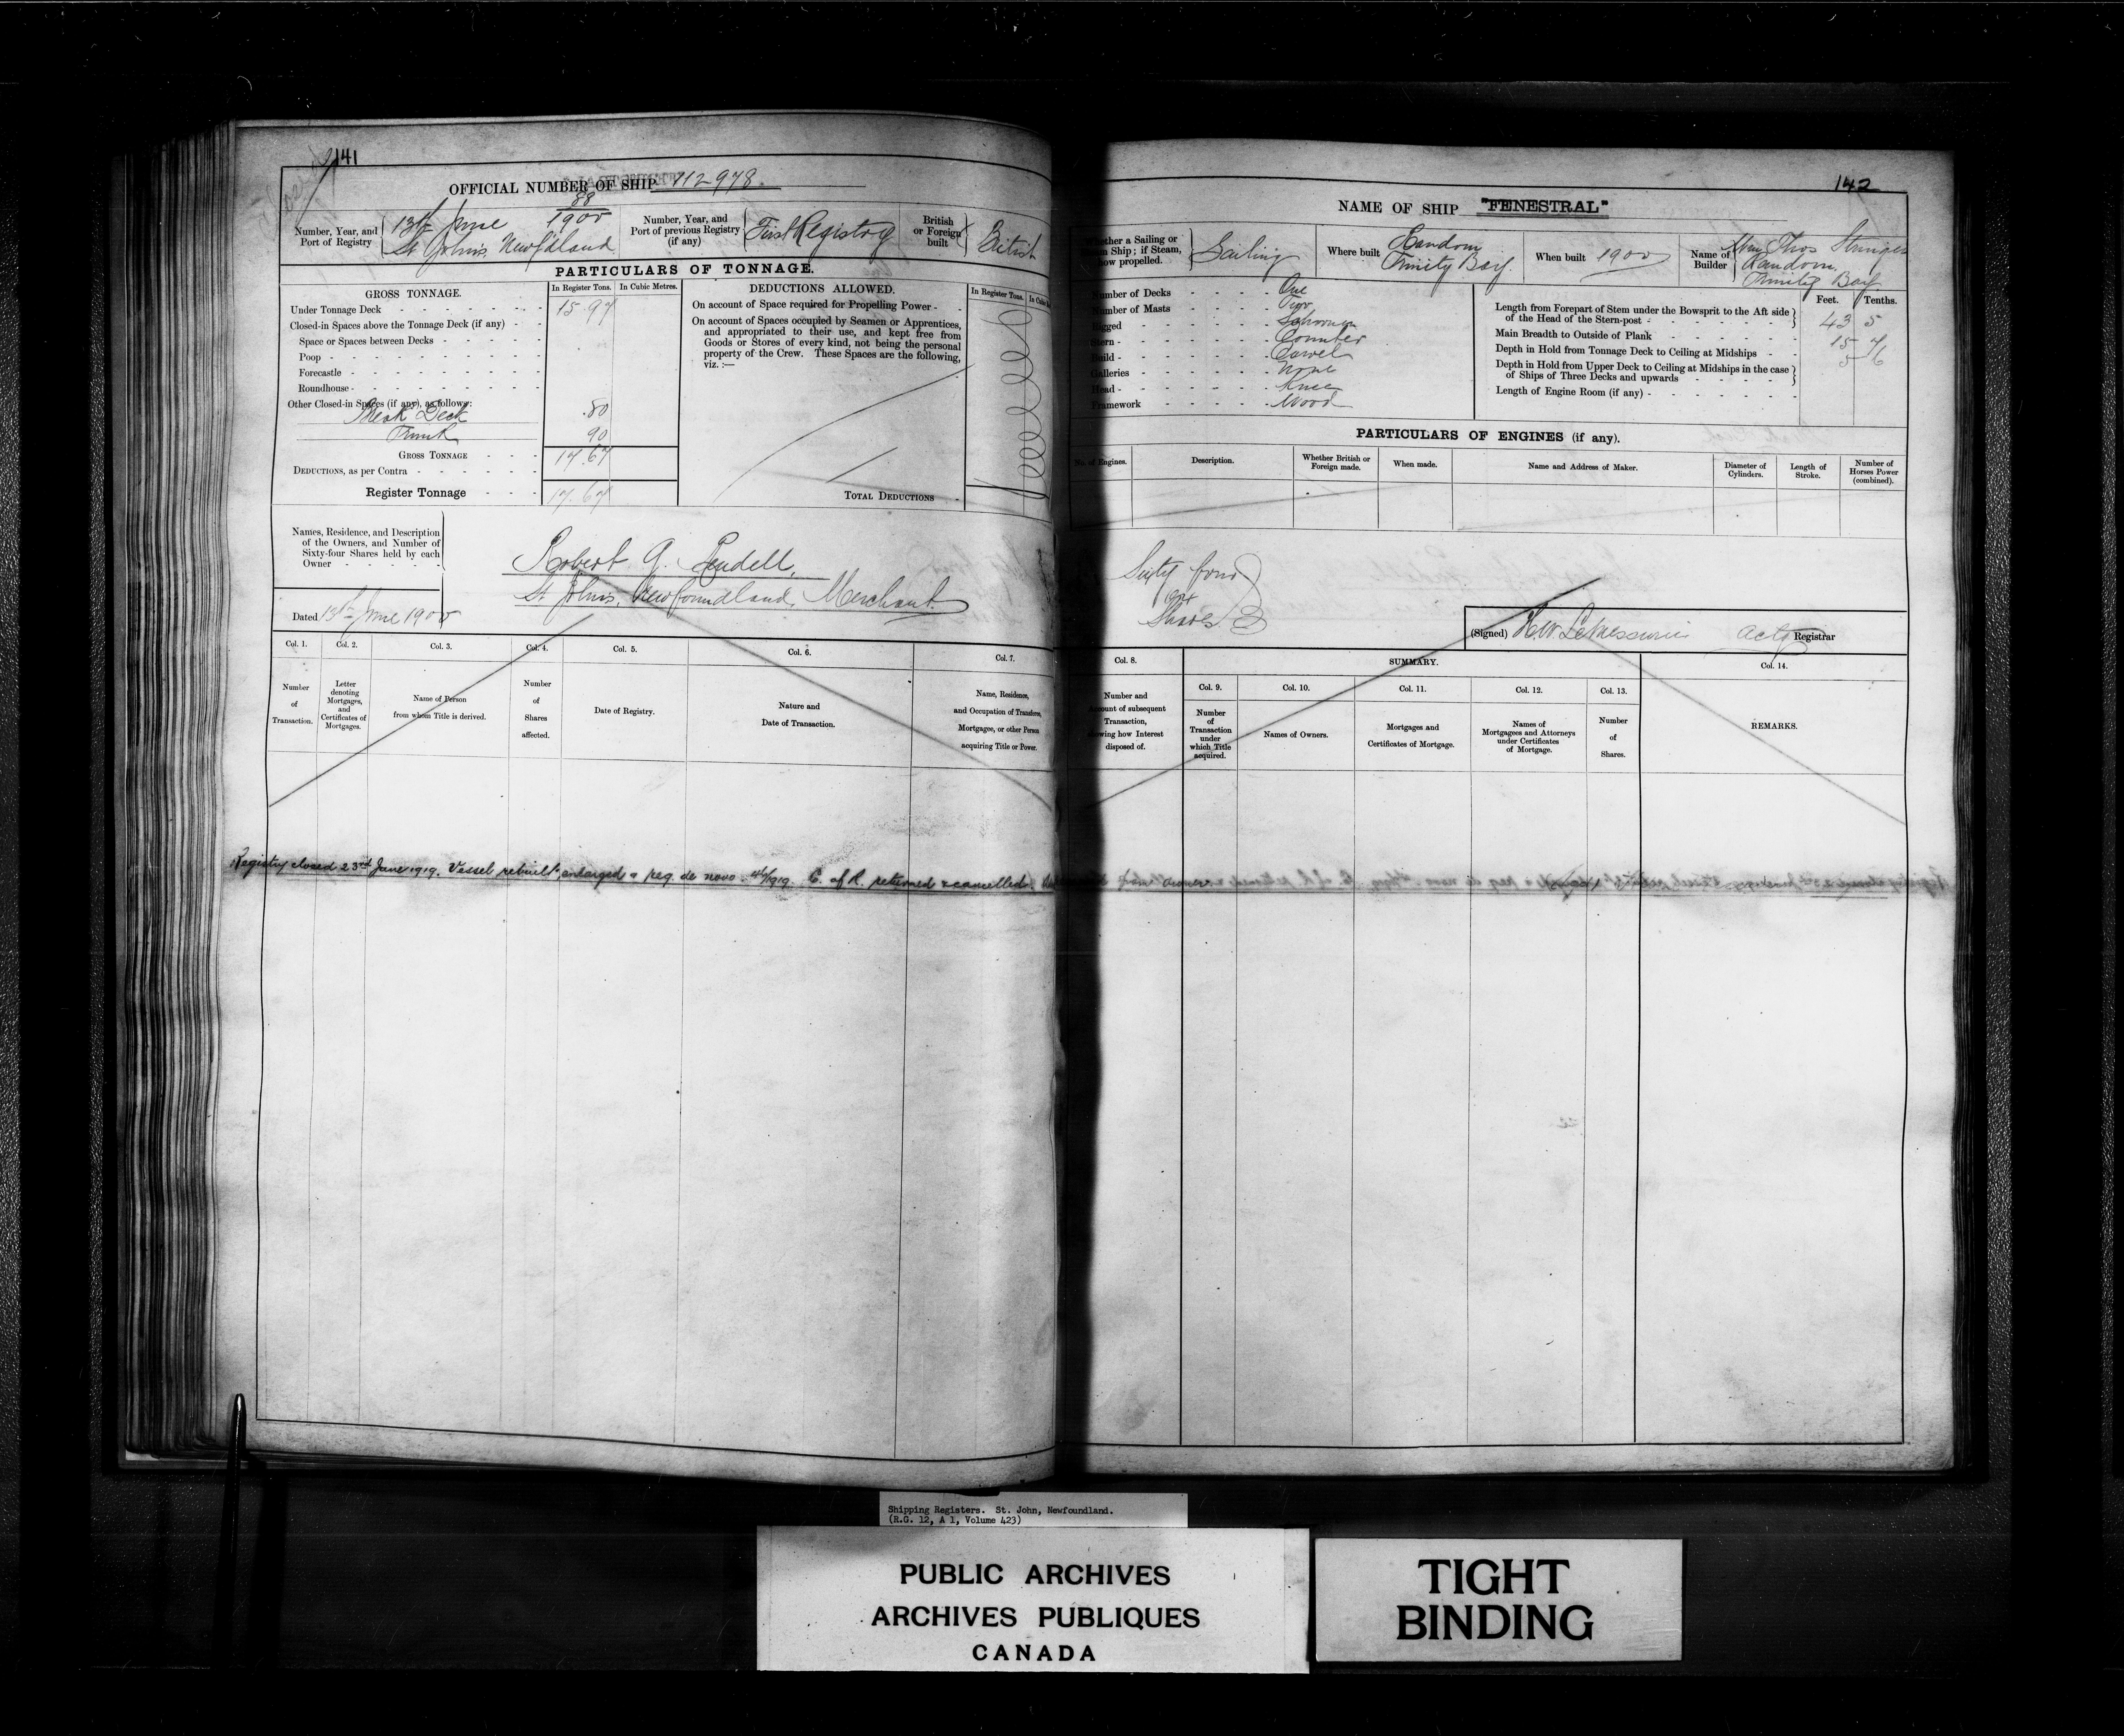 141
OFFICIAL NUMBER OF SHIP 112978.
Number, Year, and Port of Registry
88
13th June 1900
St John's, Newfdland
Number, Year, and Port of previous Registry (if any)
First Registry
British or Foreign built
British
PARTICULARS OF TONNAGE.
GROSS TONNAGE.
In Register Tons.
In Cubic Metres.
Under Tonnage Deck
15.97
Closed-in Spaces above the Tonnage Deck (if any)
Space or Spaces between Decks
Poop
Forecastle
Roundhouse
Other Closed-in Spaces (if any), as follows:
Break Deck
.80
Trunk
90
GROSS TONNAGE
17.67
DEDUCTIONS, as per Contra
Register Tonnage
17.67
DEDUCTIONS ALLOWED.
In Register Tons.
On account of Space required for Propelling Power
On account of Spaces occupied by Seamen or Apprentices,
and appropriated to their use, and kept free from
Goods or Stores of every kind, not being the personal
property of the Crew. These Spaces are the following,
viz. :—
TOTAL DEDUCTIONS
Names, Residence, and Description
of the Owners, and Number of
Sixty-four Shares held by each
Owner
Robert G. Rendell,
St John's, Newfoundland, Merchant.
Dated 13th June 1900
Col. 1.
Col. 2.
Col. 3.
Col. 4.
Col. 5.
Col. 6.
Col. 7.
Number of Transaction.
Letter denoting Mortgages, and Certificates of Mortgages.
Name of Person from whom Title is derived.
Number of Shares affected.
Date of Registry.
Nature and Date of Transaction.
Name, Residence, and Occupation of Transferee, Mortgagee, or other Person acquiring Title or Power.
Registry closed 23rd June 1919. Vessel rebuilt, enlarged & reg. de novo 46/1919. C. of R. returned & cancelled.
142
NAME OF SHIP "FENESTRAL"
Whether a Sailing or
Steam Ship; if Steam,
how propelled.
Sailing
Where built
Random
Trinity Bay.
When built 1900
Name of Builder
Wm Thos Stringer
Random
Trinity Bay
Number of Decks
One
Number of Masts
Two
Rigged
Schooner
Stern
Counter
Build
Carvel
Galleries
None
Head
Knee
Framework
Wood
Feet.
Tenths.
Length from Forepart of Stem under the Bowsprit to the Aft side
of the Head of the Stern-post
43 5
Main Breadth to Outside of Plank
15 7
Depth in Hold from Tonnage Deck to Ceiling at Midships
5 6
Depth in Hold from Upper Deck to Ceiling at Midships in the case
of Ships of Three Decks and upwards
Length of Engine Room (if any)
PARTICULARS OF ENGINES (if any).
No. of Engines.
Description.
Whether British or Foreign made.
When made.
Name and Address of Maker.
Diameter of Cylinders.
Length of Stroke.
Number of Horses Power (combined).
Sixty four
64
Shares
(Signed) H W LeMessurier Actg Registrar
Col. 8.
SUMMARY.
Col. 14.
Col. 9.
Col. 10.
Col. 11.
Col. 12.
Col. 13.
Number and Amount of subsequent Transaction, showing how Interest disposed of.
Number of Transaction under which Title acquired.
Names of Owners.
Mortgages and Certificates of Mortgage.
Names of Mortgagees and Attorneys under Certificates of Mortgage.
Number of Shares.
REMARKS.
Shipping Registers. St. John, Newfoundland.
(R.G. 12, A 1, Volume 423)
PUBLIC ARCHIVES
ARCHIVES PUBLIQUES
CANADA
TIGHT
BINDING